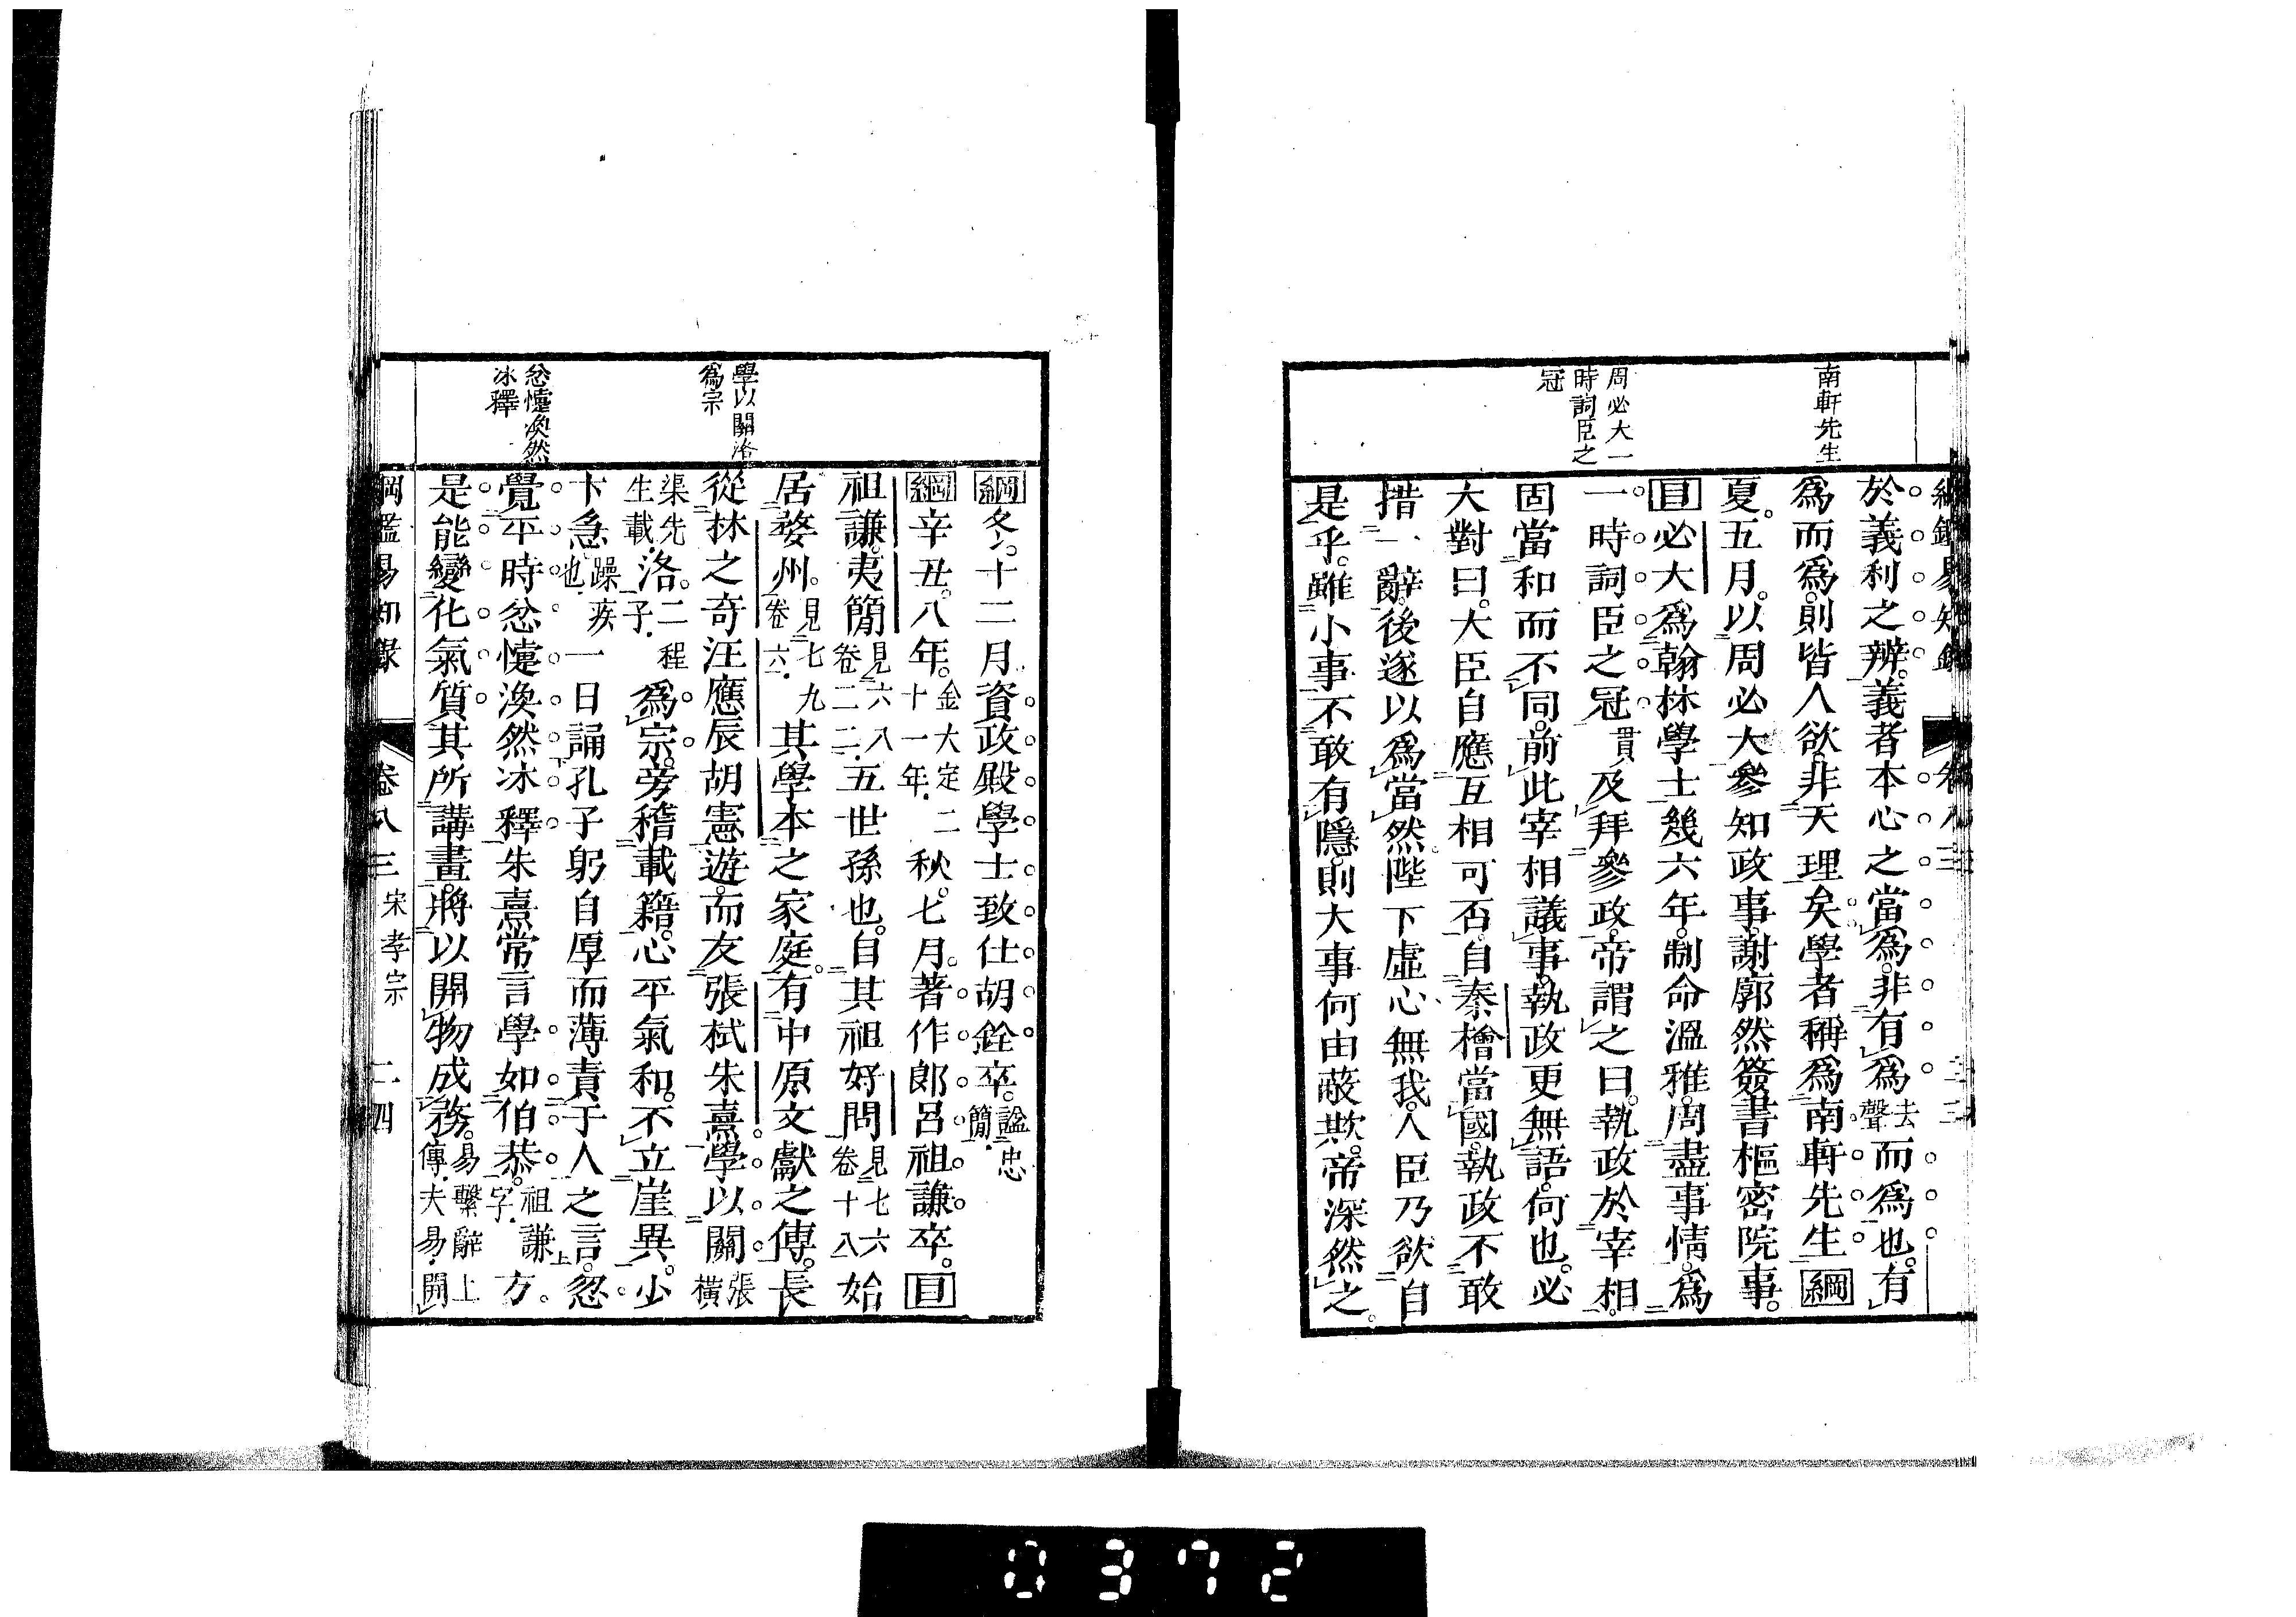 南軒先生
周必大一
時詞臣之
冠
於義利之辨。義者本心之當爲。非有爲去聲而爲也。有
爲而爲。則皆人欲。非天理矣。學者稱爲南軒先生綱
夏。五月。以周必大參知政事。謝廓然簽書樞密院事。
目必大爲翰林學士幾六年。制命溫雅。周盡事情。爲
一時詞臣之冠貫及拜參政。帝謂之曰。執政於宰相。
固當和而不同。前此宰相議事。執政更無語。何也。必
大對曰。大臣自應互相可否。自秦檜當國。執政不敢
措一辭。後遂以爲當然。陛下虛心無我。人臣乃欲自
是乎。雖小事不敢有隱。則大事何由蔽欺。帝深然之。
學以關洛
爲宗
忿懥渙然
冰釋
綱冬。十二月。資政殿學士致仕胡銓卒。謚忠簡。
綱辛丑。八年。金大定二十一年。秋。七月。著作郎呂祖謙卒。目
祖謙。夷簡見六八卷二二。五世孫也。自其祖好問見七六卷十八始
居婺州。見七九卷六。其學本之家庭。有中原文獻之傳。長
從林之奇汪應辰胡憲遊。而友張栻朱熹。學以關張橫
渠先生載。洛。二程子。爲宗。旁稽載籍。心平氣和。不立崖異。少
卞急躁疾也。一日誦孔子躬自厚而薄責于人之言。忽
覺平時忿懥渙然冰釋。朱熹常言學如伯恭。祖謙字。方
是能變化氣質其所講畫。將以開物成務。易繫辭上傳。夫易。開
綱鑑易知錄 卷八三 宋孝宗 二四